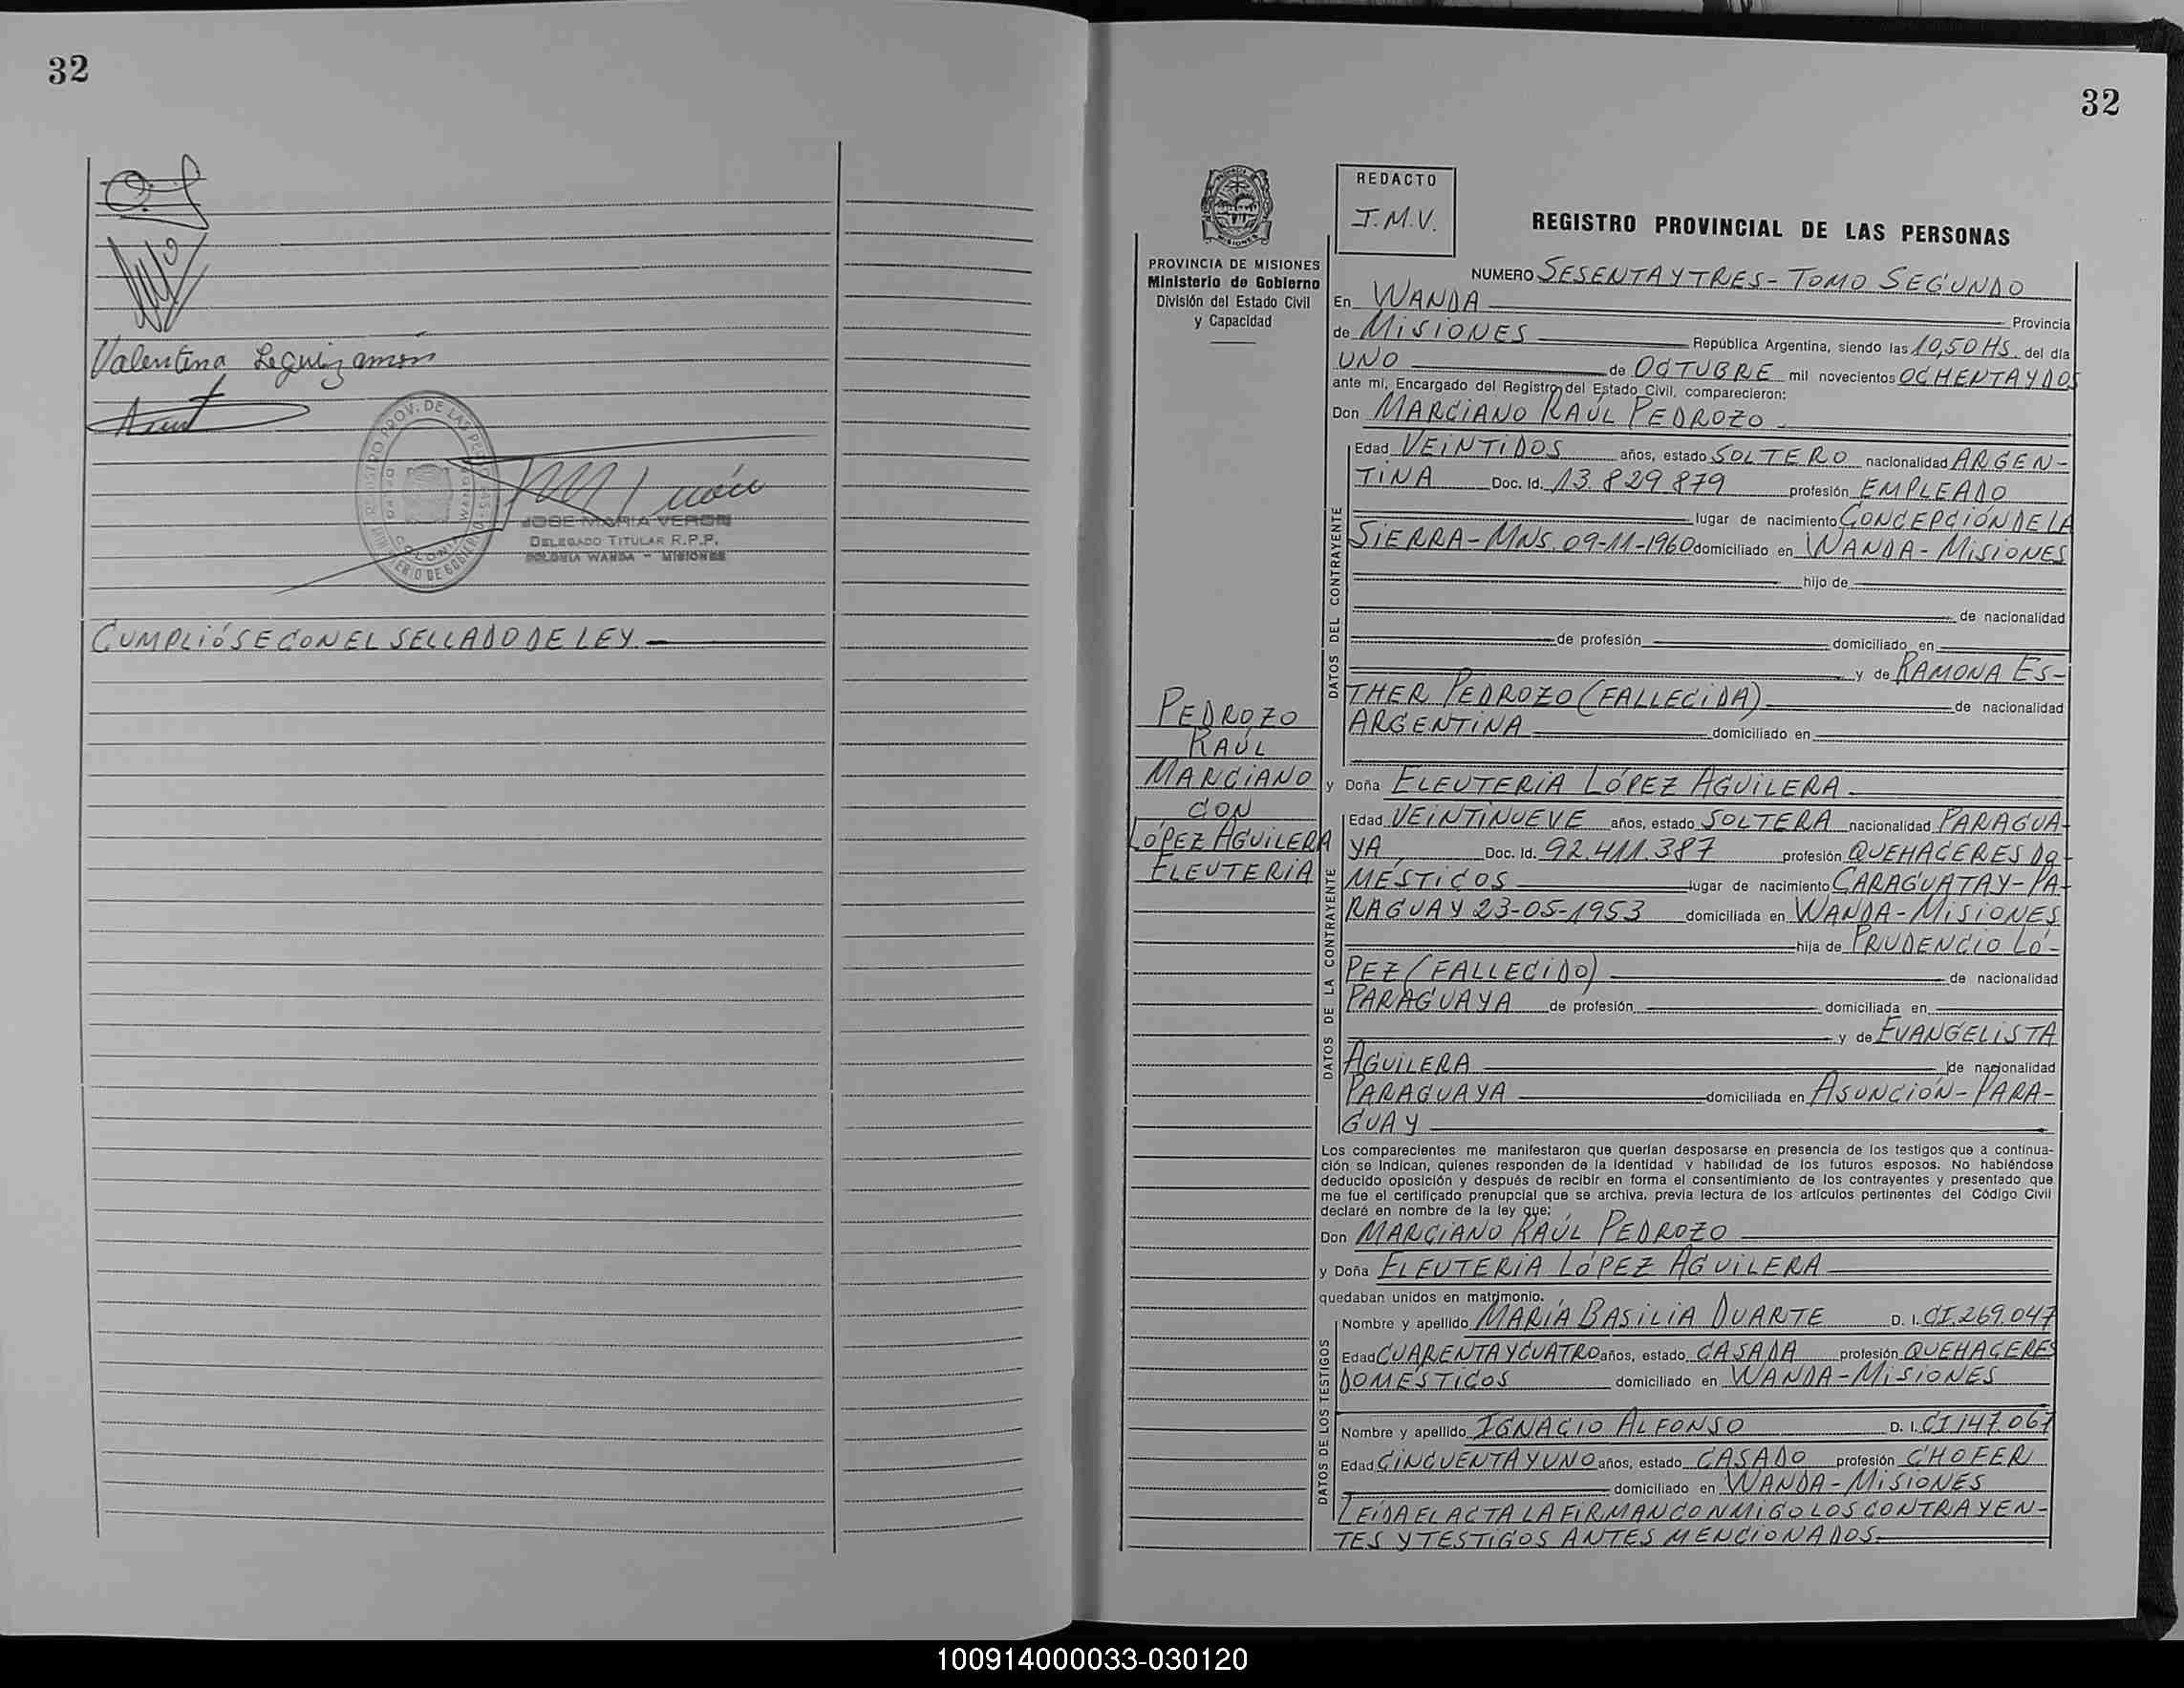 32
Valentina Leguizamón
JOSE MARIA VERON
DELEGADO TITULAR R.P.P.
COLONIA WANDA - MISIONES
CUMPLIÓSE CON EL SELLADO DE LEY.
32
PROVINCIA DE MISIONES
Ministerio de Gobierno
División del Estado Civil
y Capacidad
PEDROZO
RAÚL
MARCIANO
CON
LÓPEZ AGUILERA
ELEUTERIA
REDACTO
I.M.V.
REGISTRO PROVINCIAL DE LAS PERSONAS
NUMERO SESENTA Y TRES - TOMO SEGUNDO
En WANDA Provincia
de MISIONES República Argentina, siendo las 10,50 HS. del día
UNO de OCTUBRE mil novecientos OCHENTA Y DOS
ante mí, Encargado del Registro del Estado Civil, comparecieron:
Don MARCIANO RAÚL PEDROZO
DATOS DEL CONTRAYENTE
Edad VEINTIDOS años, estado SOLTERO nacionalidad ARGEN-
TINA Doc. Id. 13.829.879 profesión EMPLEADO
lugar de nacimiento CONCEPCIÓN DE LA
SIERRA-MNS. 09-11-1960 domiciliado en WANDA-MISIONES
hijo de
de nacionalidad
de profesión domiciliado en
y de RAMONA ES-
THER PEDROZO (FALLECIDA) de nacionalidad
ARGENTINA domiciliado en
y Doña ELEUTERIA LÓPEZ AGUILERA
DATOS DE LA CONTRAYENTE
Edad VEINTINUEVE años, estado SOLTERA nacionalidad PARAGUA-
YA Doc. Id. 92.411.387 profesión QUEHACERES DO-
MÉSTICOS lugar de nacimiento CARAGUATAY-PA-
RAGUAY 23-05-1953 domiciliada en WANDA-MISIONES
hija de PRUDENCIO LÓ-
PEZ (FALLECIDO) de nacionalidad
PARAGUAYA de profesión domiciliada en
y de EVANGELISTA
AGUILERA de nacionalidad
PARAGUAYA domiciliada en ASUNCIÓN-PARA-
GUAY
Los comparecientes me manifestaron que querían desposarse en presencia de los testigos que a continua-
ción se indican, quienes responden de la identidad y habilidad de los futuros esposos. No habiéndose
deducido oposición y después de recibir en forma el consentimiento de los contrayentes y presentado que
me fue el certificado prenupcial que se archiva, previa lectura de los artículos pertinentes del Código Civil
declaré en nombre de la ley que:
Don MARCIANO RAÚL PEDROZO
y Doña ELEUTERIA LÓPEZ AGUILERA
quedaban unidos en matrimonio.
DATOS DE LOS TESTIGOS
Nombre y apellido MARÍA BASILIA DUARTE D. I. CI.269.047
Edad CUARENTA Y CUATRO años, estado CASADA profesión QUEHACERES
DOMÉSTICOS domiciliado en WANDA-MISIONES
Nombre y apellido IGNACIO ALFONSO D. I. CI 147.067
Edad CINCUENTA Y UNO años, estado CASADO profesión CHOFER
domiciliado en WANDA-MISIONES
LEÍDA EL ACTA LA FIRMAN CONMIGO LOS CONTRAYEN-
TES Y TESTIGOS ANTES MENCIONADOS.
100914000033-030120